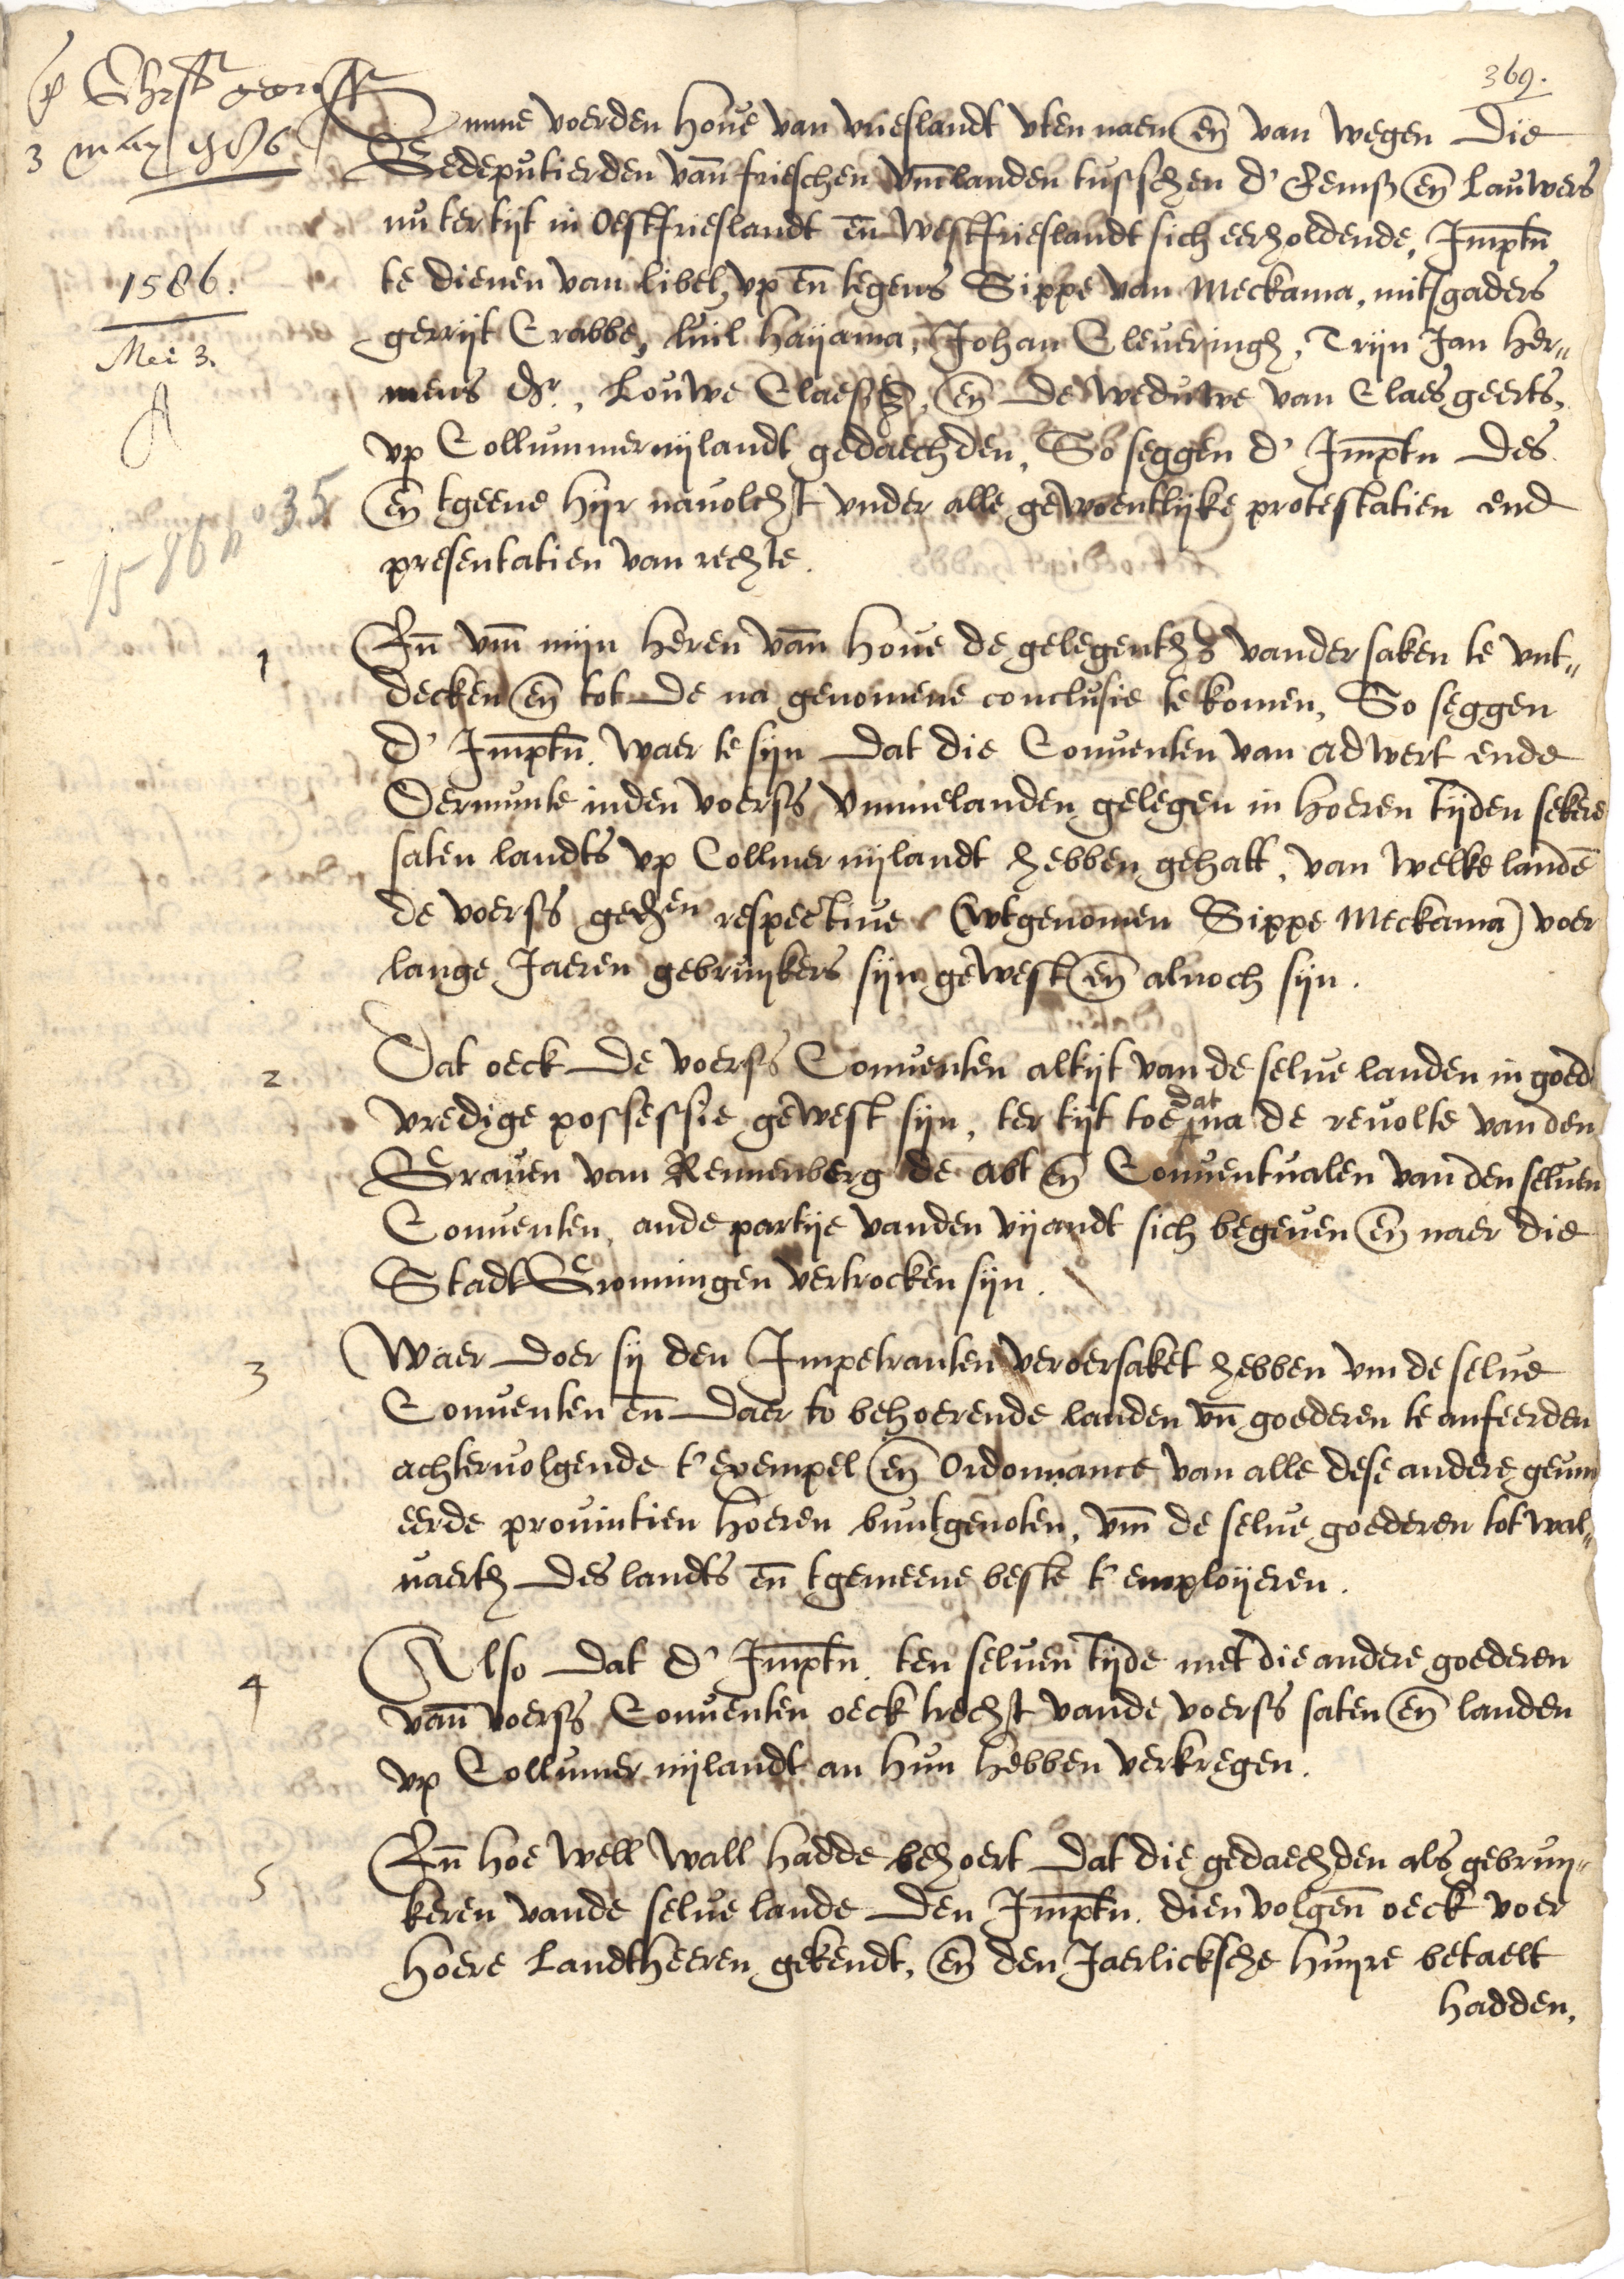 369.
3 may 1586
1586.
Mei 3.
A
1586 no 35
Vmme voerden houe van vrieslandt vten naem en̄ van wegen die
Gedeputierden van̄ frieschen vm̄landen tusschen d' Eemss en̄ Lauwers
nu ter tijt in Oestfrieslandt en̄ Westfrieslandt sich eerholdende, Imptn̄
te dienen van libel, vp en̄ tegens Sippe van Meckama, mitsgaders
gerrijt Crabbe, luil haijama, Johan Cleueringh, Trijn Jan Her„
mens dr., Louwe Claessz, en̄ de weduwe van Claes geerts,
vp Collummernijlandt gedaechden, So seggen d' Imptn des
en̄ tgeene hijr nauolcht vnder alle gewoentlijke protestatien end
presentatien van rechte.
1 En̄ vm̄ mijn heren van̄ houe de gelegenthz vander saken te vnt„
decken en̄ tot de na genomene conclusie te komen, So seggen
d' Imptn̄. waer te sijn dat die Conuenten van Adwert ende
Oermunte inden voerss vmmelanden gelegen in hoeren tijden sekere
saten landts vp Collmer nijlandt hebben gehatt, van welke landē
de voerss gedhen respectiue (wtgenomen Sippe Meckama) voer
lange Jaeren gebruijkers sijn gewest en̄ alnoch sijn.
2 Dat oeck de voerss Conuenten altijt van de selue landen in goed
vredige possessie gewest sijn, ter tijt toe dat na de reuolte van den
Grauen van Rennenberg de Abt en̄ Conuentualen van den seluen
Conuenten, ande partije vanden vijandt sich begeuen en̄ naer die
Stadt Gronningen vertrocken sijn.
3 Waer doer sij den Impetranten veroersaket hebben vm de selue
Conuenten en̄ daer to behoerende landen vn̄ goederen te anfeerden
achteruolgende t' exempel en̄ Ordonnance van alle dese andere geuni
eerde prouintien hoeren buntgenoten, vm̄ de selue goederen tot wal„
uaerth des landts en̄ tgemeene beste t' emploijeren.
4 Also dat d' Imptn. ten seluen tijde met die andere goederen
van̄ voerss Conuenten oeck trecht vande voerss saten en̄ landen
vp Collumer nijlandt an hun hebben verkregen.
5 En̄ hoe well wall hadde behoert dat die gedaechden als gebruij„
keren vande selue lande den Imptn. dien volgen̄ oeck voer
hoere Landtheeren gekendt, en̄ den Jaerlicksche huijre betaelt
hadden,